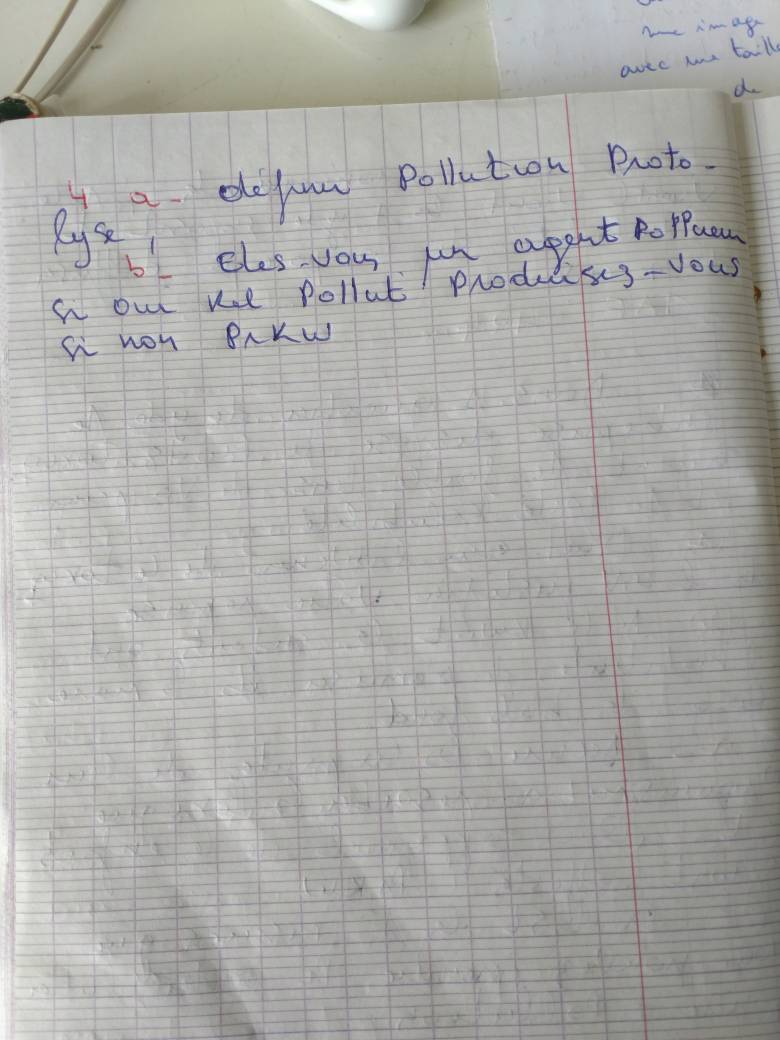 une image
avec une taille
de
4 a- définir Pollution Proto-
lyse,
b- Etes-vous un agent Pollueur
si oui kel Pollut Produisez-vous
si non PrKW